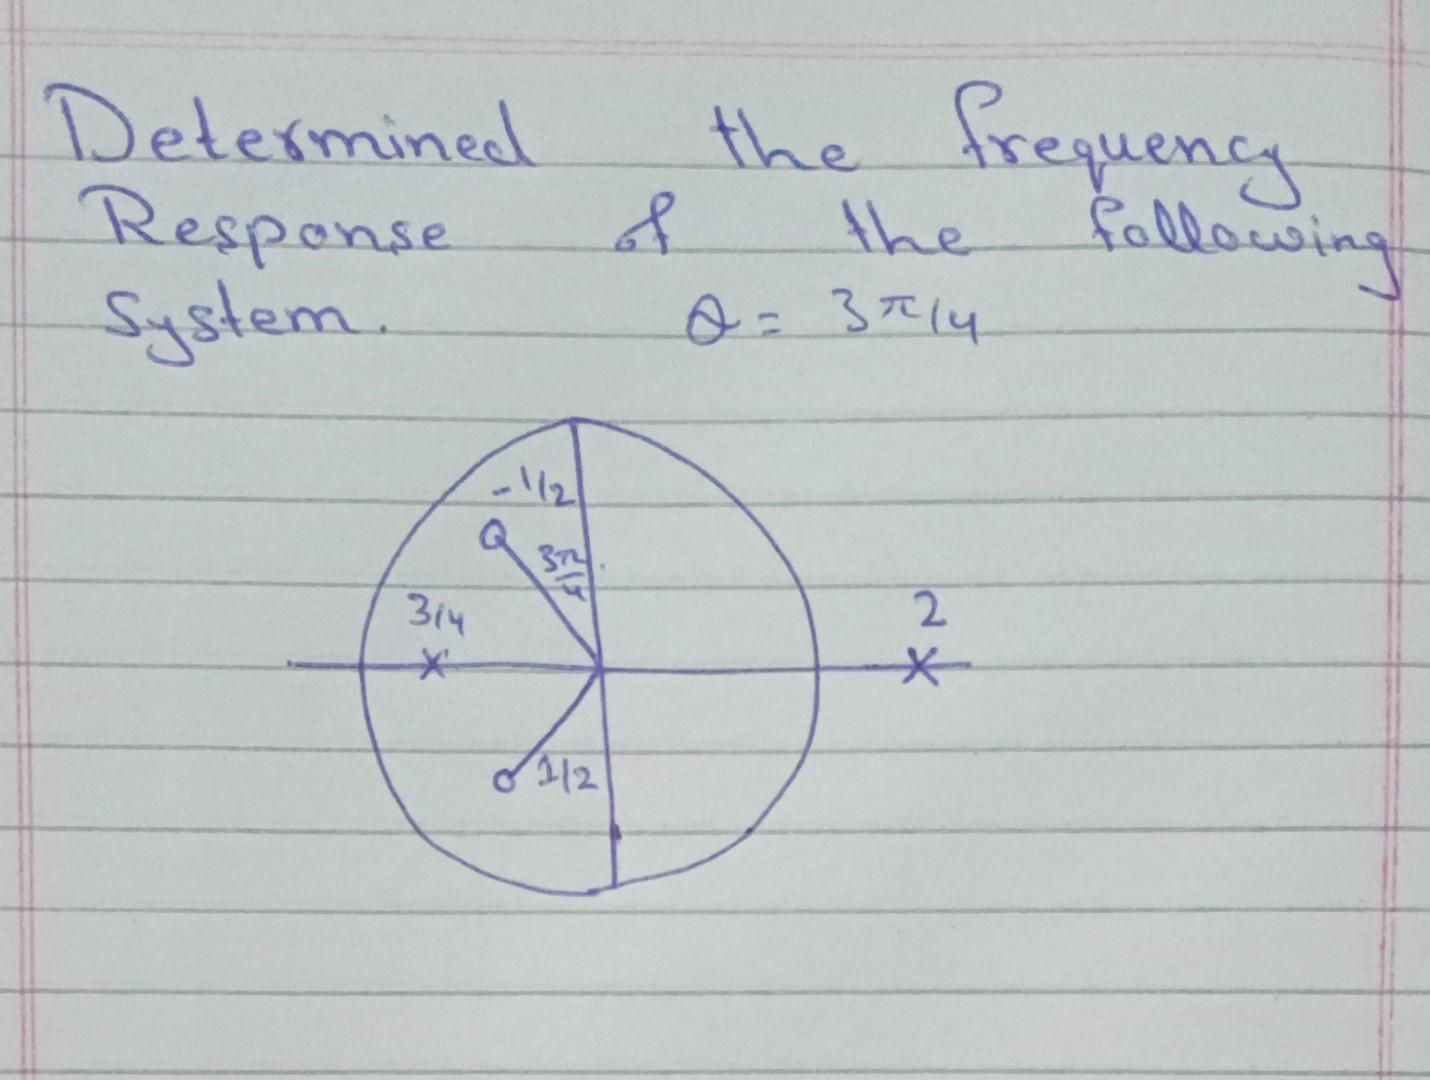 Determined the frequency
Response of the following
System. θ = 3π/4
-1/2
3π/4
3/4
2
1/2